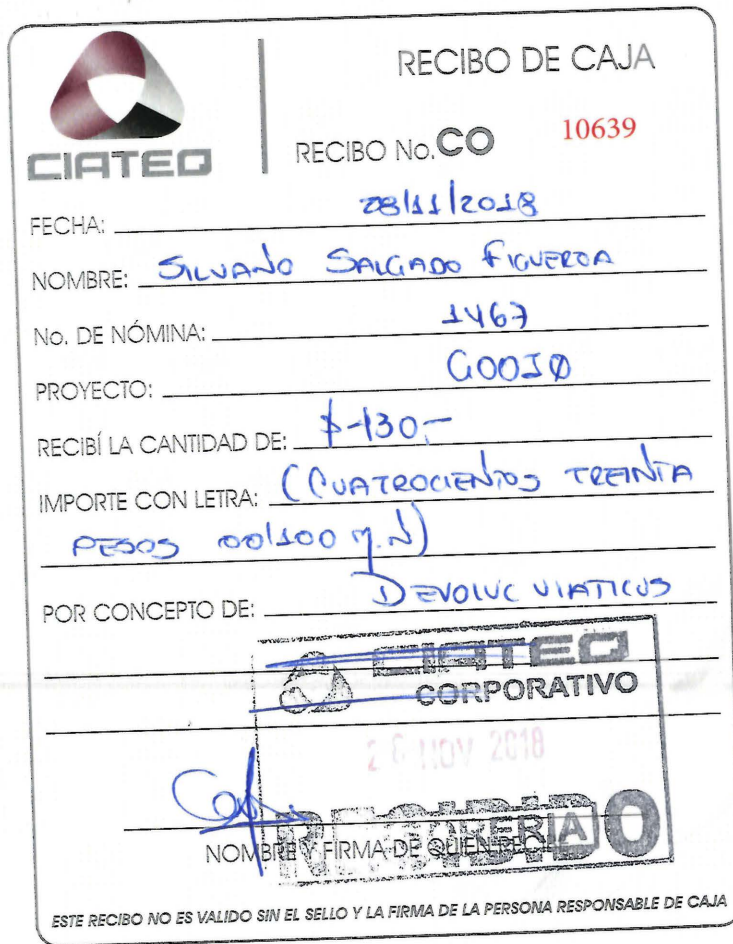 RECIBO DE CAJA
CIATEQ
RECIBO No. CO 10639
FECHA: 28/11/2018
NOMBRE: SILVANO SALGADO FIGUEROA
No. DE NÓMINA: 1467
PROYECTO: G0010
RECIBÍ LA CANTIDAD DE: $430.-
IMPORTE CON LETRA: (CUATROCIENTOS TREINTA
PESOS 00/100 M.N)
POR CONCEPTO DE: DEVOLUC VIATICOS
CIATEQ
CORPORATIVO
NOV 2018
RECIBIDO
TESORERIA
NOMBRE Y FIRMA DE QUIEN RECIBE
ESTE RECIBO NO ES VALIDO SIN EL SELLO Y LA FIRMA DE LA PERSONA RESPONSABLE DE CAJA